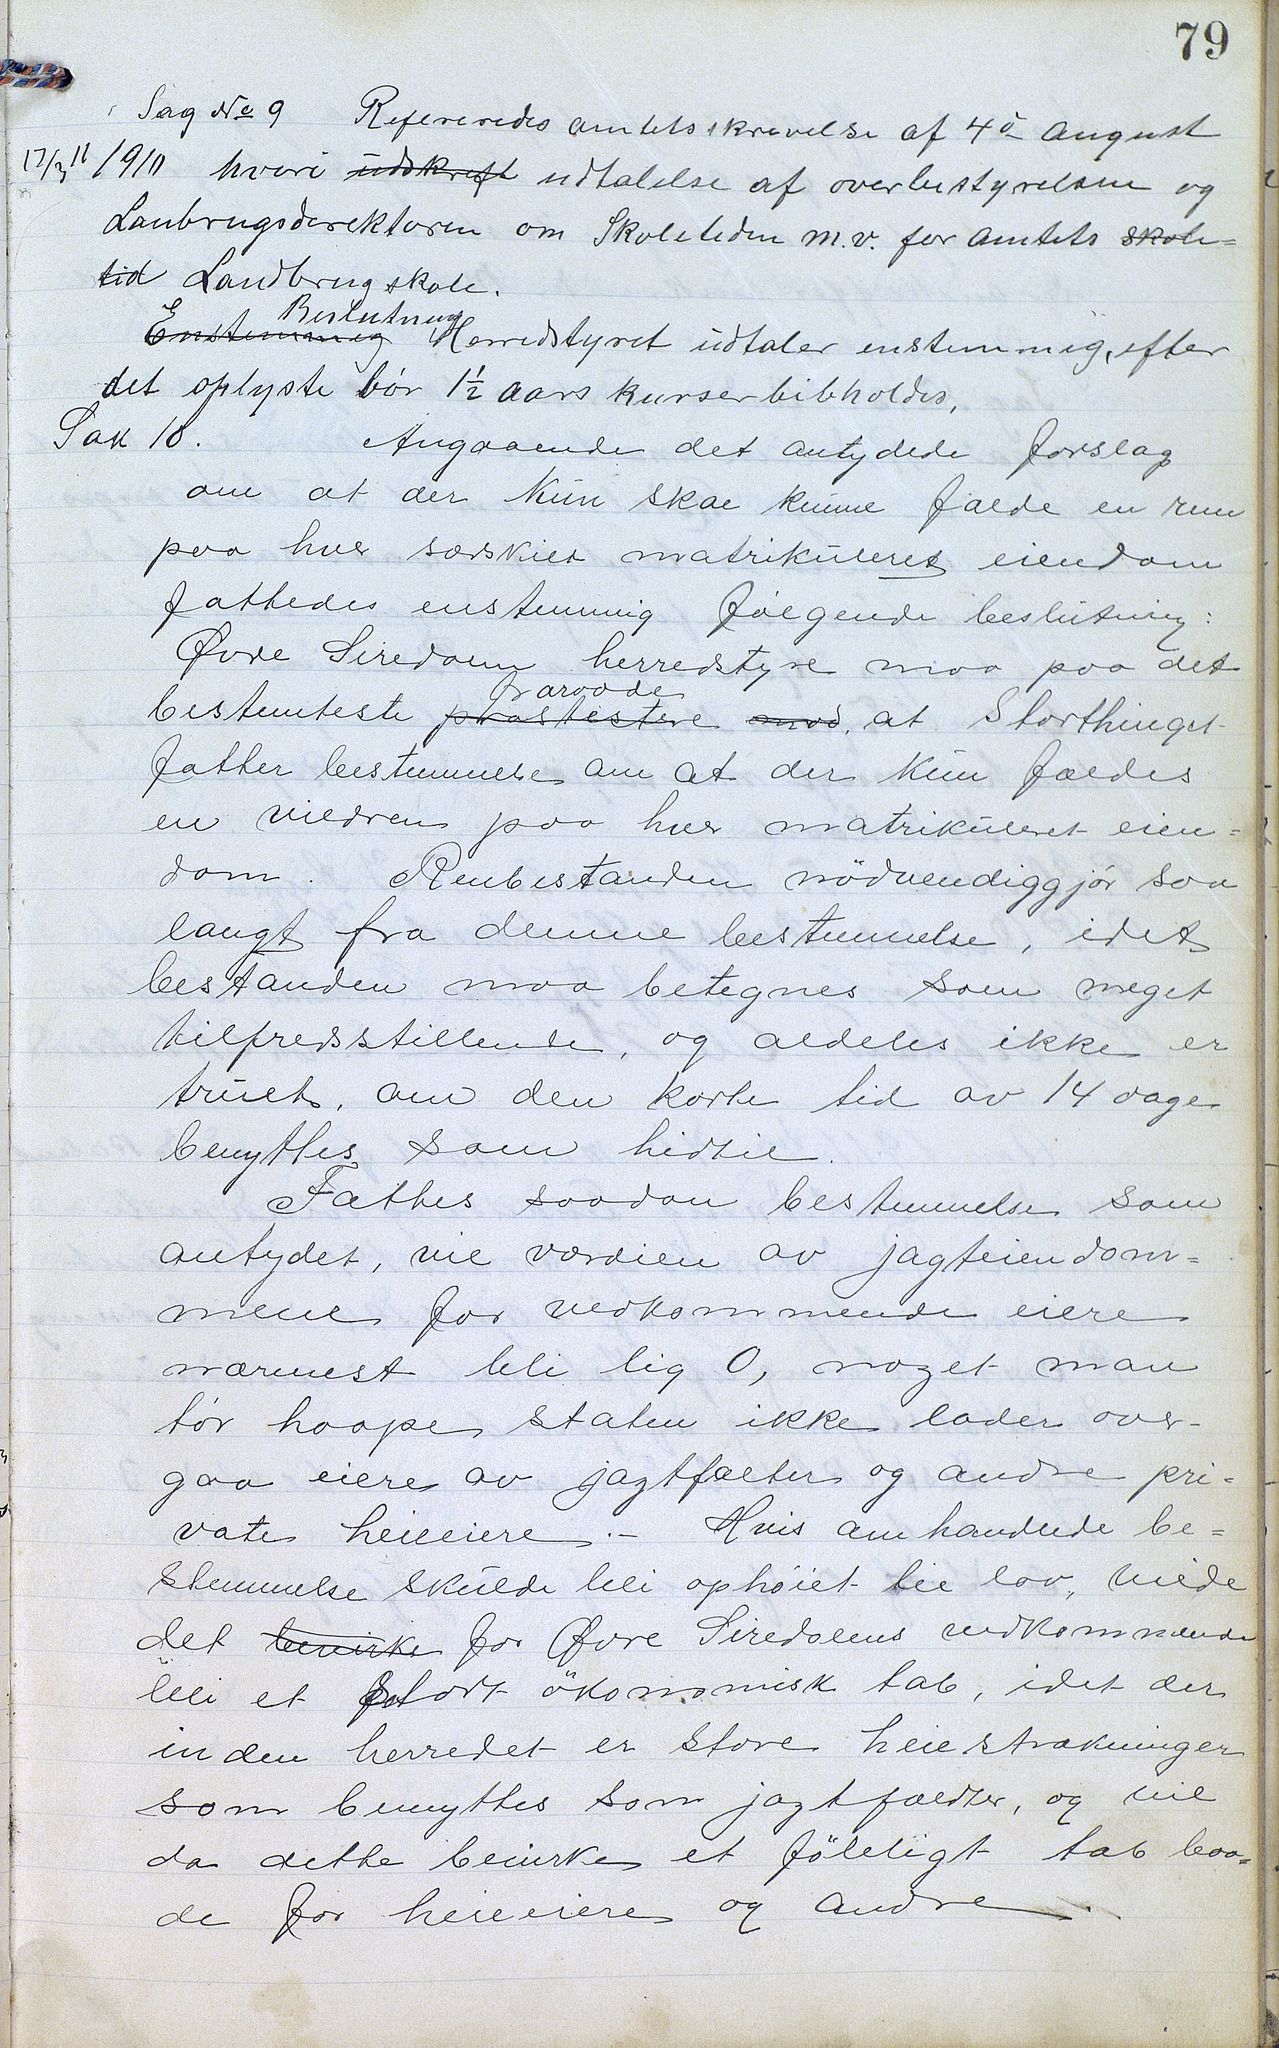 79
Sag No 9 Refereredes amtetsskrivelse af 4de august
17/3 11 1910 hvori udskreft udtalelse af overbestyrelsen og
Lanbrugsdirektøren om Skoletiden m.v. for amtets skole=
tid Landbrugskole.
Beslutning
Enstemmig Herredstyret udtaler enstemmig, efter
det oplyste bør 1½ aars kurser bibholdes,
Sak 10. Angaaende det antydede forslag
om at der kun skal kunne fælde en ren
paa hver særskilt matrikuleret eiendom
fattedes enstemmig følgende beslutning:
Øvre Siredalen herredstyre maa paa det
fraraade
bestemteste prostestere mod, at Storthinget
fatter bestemmelse om at der kun fældes
en vildren paa hver matrikuleret eien=
dom. Renbestanden nödvendiggjör saa
langt fra denne bestemmelse, idet
bestanden maa betegnes som meget
tilfredsstillende, og aldeles ikke er
truet, om den korte tid av 14 dage
benyttes som hidtil.
Fattes saadan bestemmelse som
antydet, vil værdien av jagteiendom=
mene for vedkommende eiere
nærmest bli lig 0, noget man
tör haape staten ikke lader over-
gaa eiere av jagtfælter og andre pri-
vate heieiere. - Hvis omhandlede be=
stemmelse skulde bli ophöiet til lov, vilde
det bevirke for Øvre Siredalens vedkommende
bli et stort ökonomisk tab, idet der
inden herredet er store heiestrækninger
som benyttes som jagtfældter, og vil
da dette bevirke et föleligt tab baa=
de for heieeiere og andre.